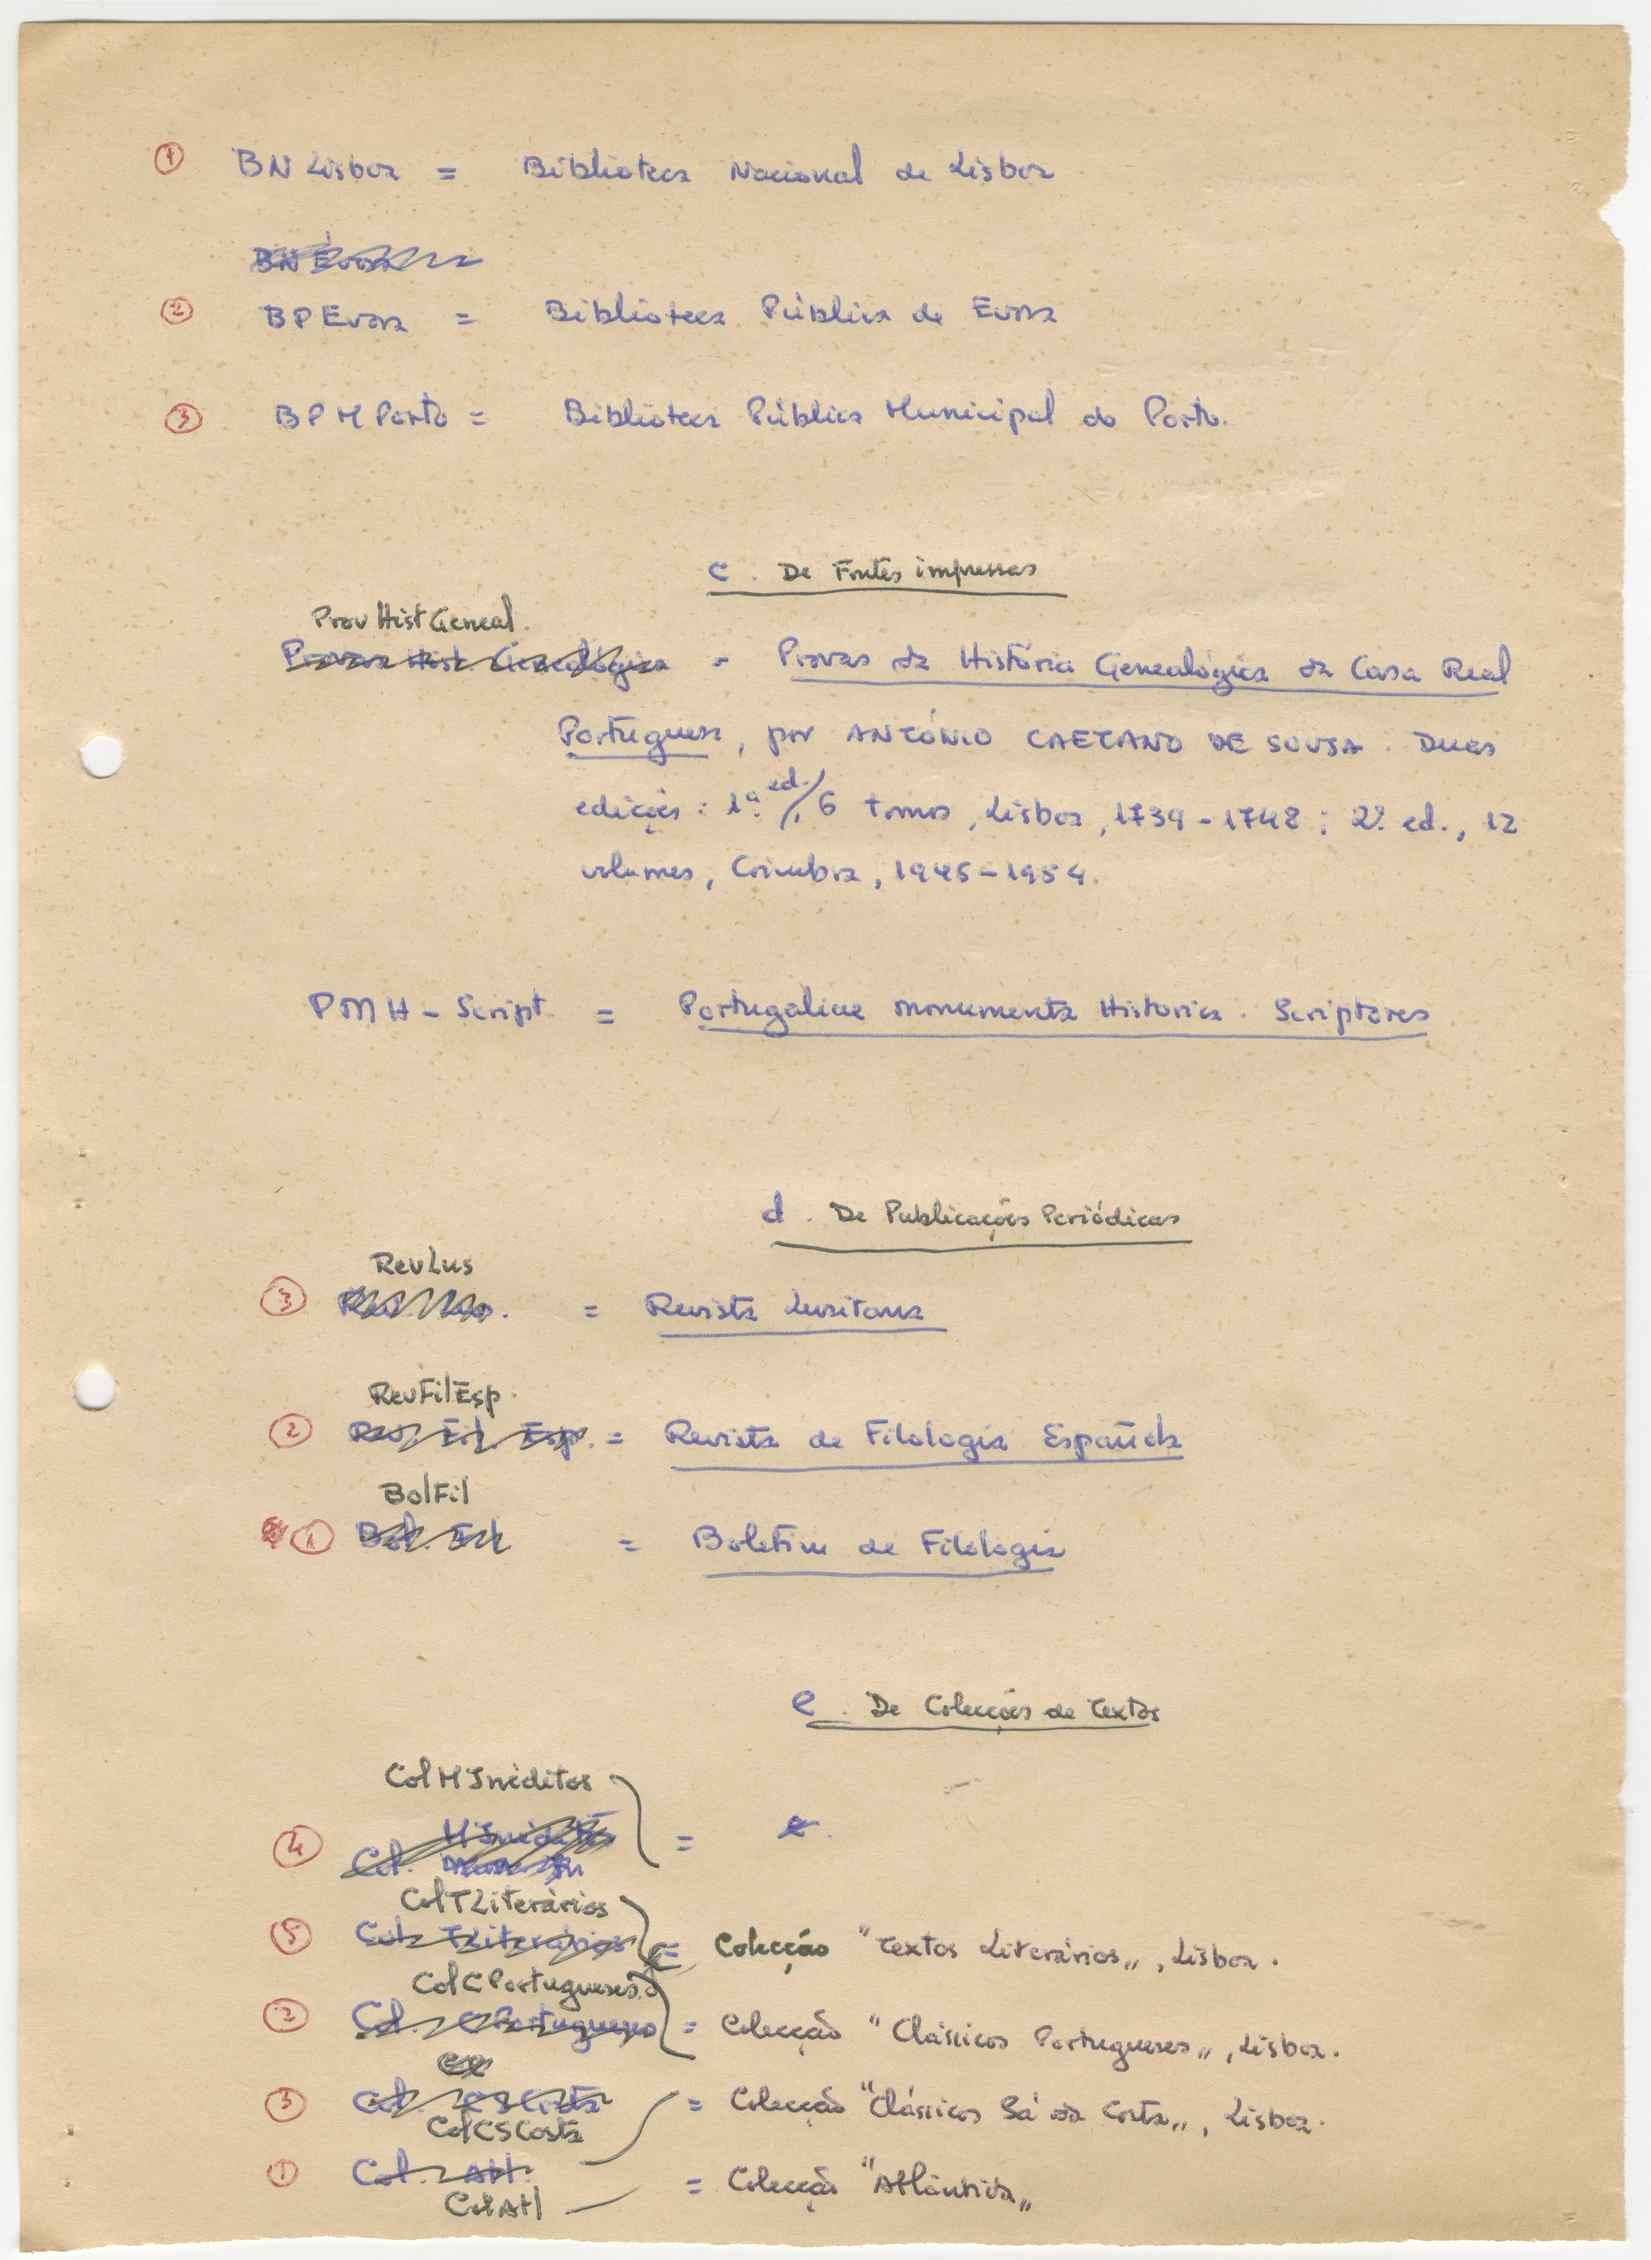 ① BN Lisboa = Biblioteca Nacional de Lisboa
BN Évora
② BPEvora = Biblioteca Pública de Evora
③ BPMPorto = Biblioteca Pública Municipal do Porto.
c. De Fontes impressas
ProvHistGeneal.
Provas Hist. Genealógica = Provas da História Genealógica da Casa Real
Portuguesa, por ANTÓNIO CAETANO DE SOUSA. Duas
edições: 1ª ed., 6 tomos, Lisboa, 1739-1748; 2ª ed., 12
volumes, Coimbra, 1945-1954.
PMH-Script. = Portugaliae Monumenta Historica. Scriptores
d. De Publicações Periódicas
RevLus
③ = Revista Lusitana
RevFilEsp.
② Rev. Fil. Esp. = Revista de Filologia Española
BolFil
① Bol. Fil = Boletim de Filologia
e. De Colecções de Textos
ColMInéditos
MInéditos
④ Col. =
ColTLiterários
⑤ Col. TLiterários = Colecção "Textos Literários", Lisboa.
ColCPortugueses
② Col. CPortugueses = Colecção "Clássicos Portugueses", Lisboa.
③ Col. CSCosta = Colecção "Clássicos Sá da Costa", Lisboa.
ColCSCosta
① Col. Atl. = Colecção "Atlântida"
ColAtl